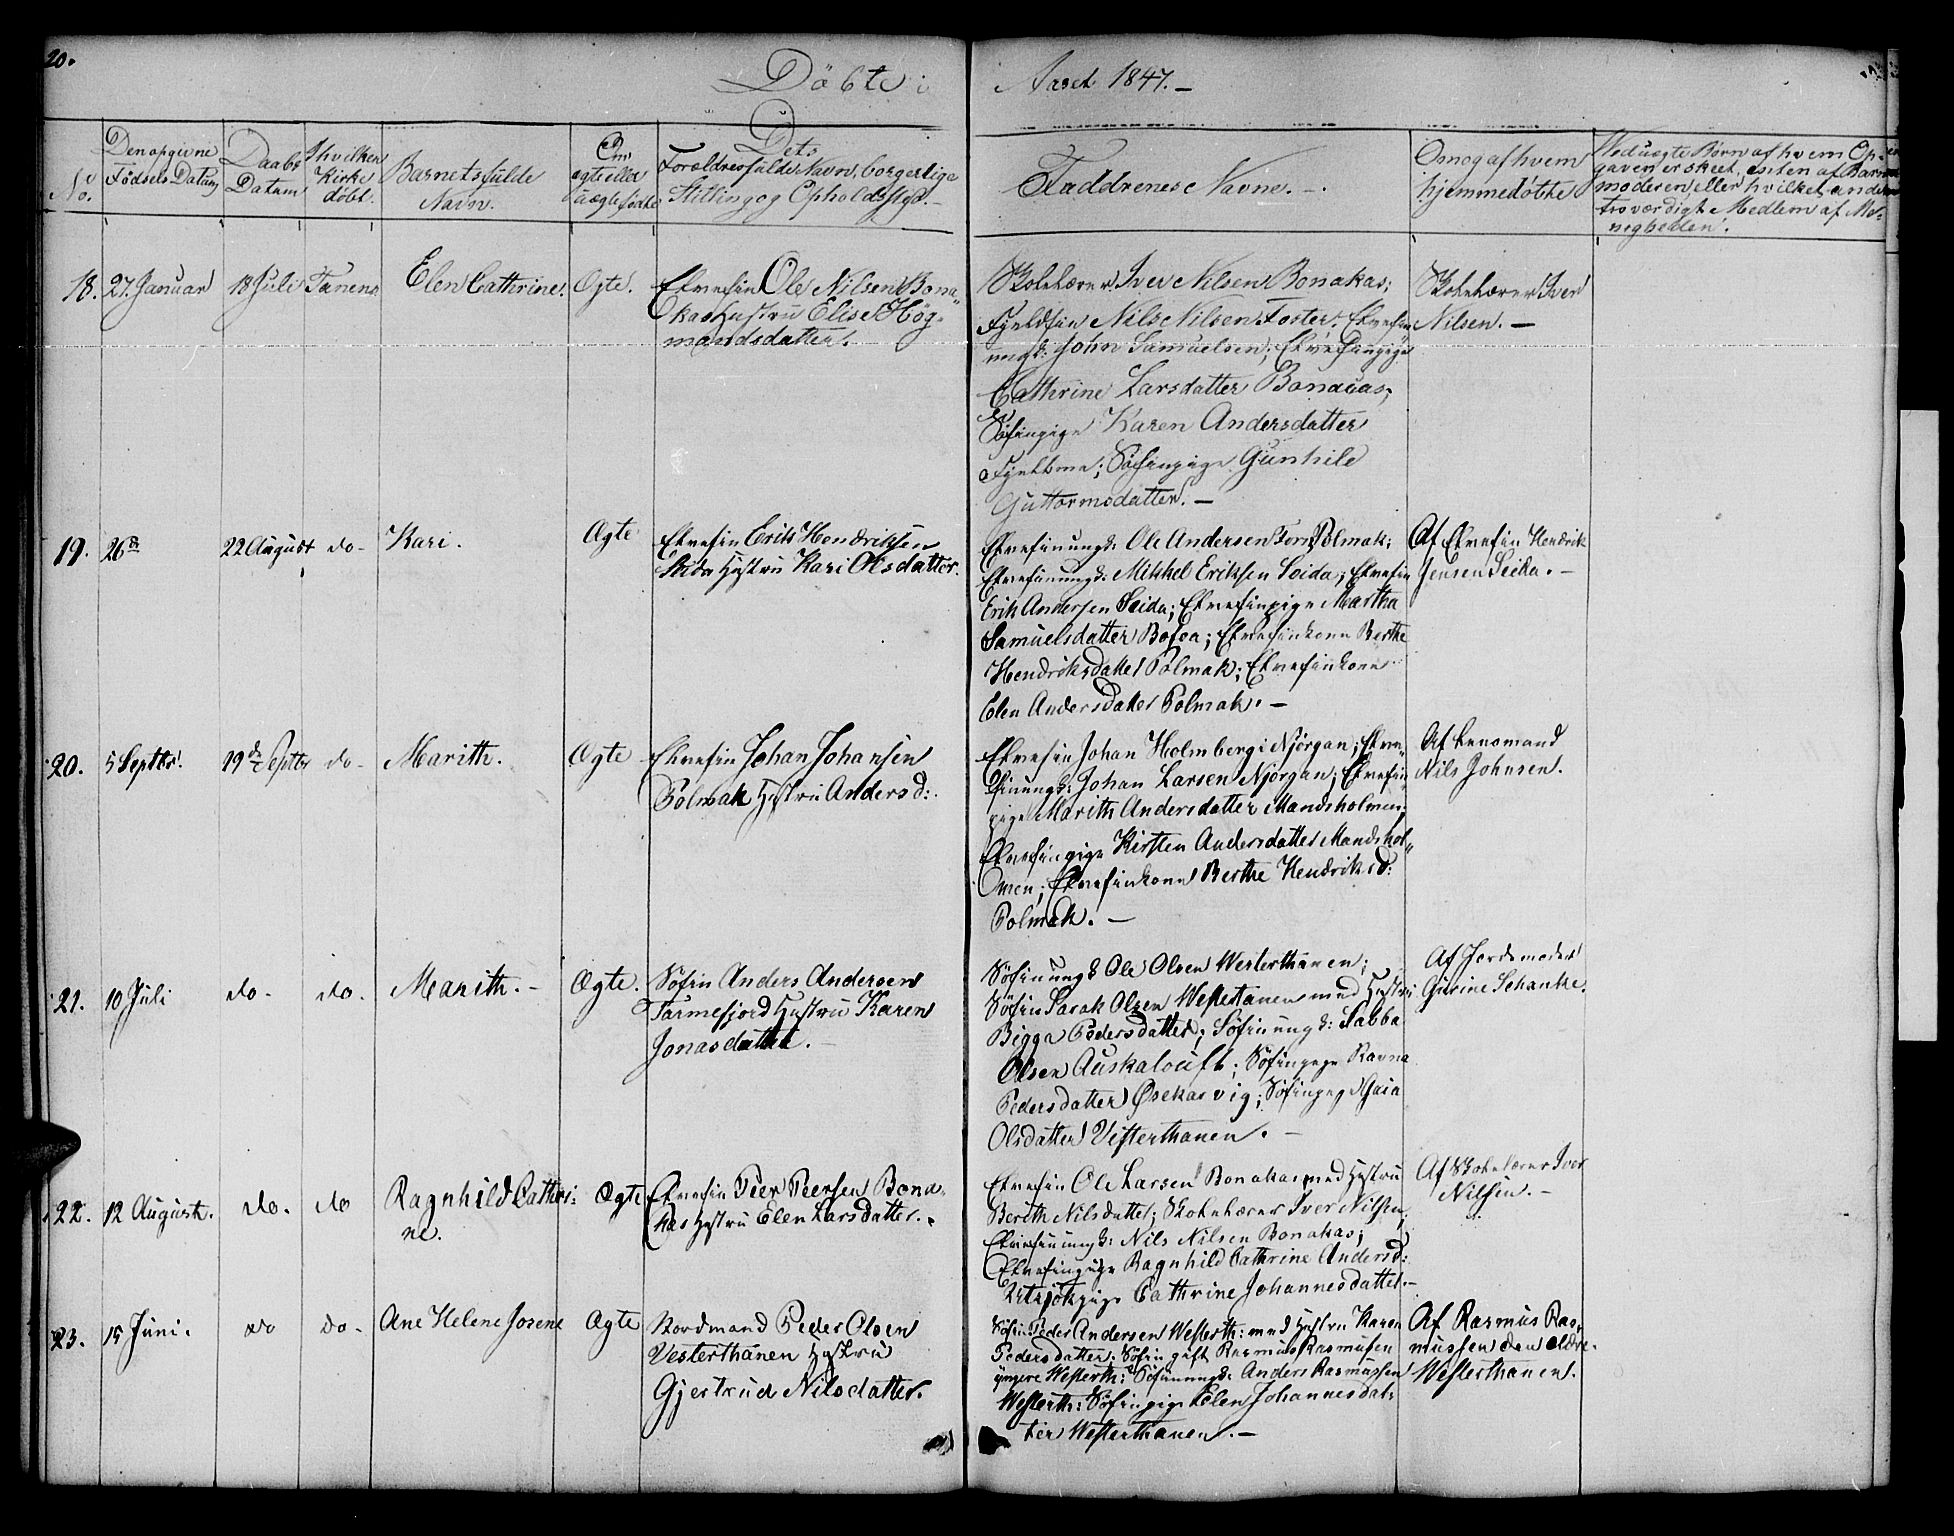 20.
Döbte i Aaret 1847. —
No.
Den opgivne
Födsels Datum
Daabs
Datum
I hvilken
Kirke
döbt.
Barnets fulde
Navn.
Om
ægte eller
uægte födte
Dets
Forældres fulde Navn, borgerlige
Stilling og Opholdssted. —
Faddrenes Navne. —
Om og af hvem
hjemmedöbte
Ved uægte Børn af hvem Op-
gaven er skeet, esiten af Barne
moderen eller hvilket andet
troværdigt Medlem af Me-
nigheden.
18. 27. Januar
18 Juli
Tanens
Elen Cathrine.
Ægte.
Elvefin Ole Nilsen Bona-
kas Hustru Elise Hög-
mandsdatter.
Skolelærer Iver Nilsen Bonakas;
Fjeldfin Nils Nilsen Foster; Elvefin
ungk: John Samuelsen; Elvefinpige
Cathrine Larsdatter Bonacas;
Söfinpige Karen Andersdatter
Söfinpige Gunhild
Guttormsdatter. —
Skolelærer Iver
Nilsen. —
19. 26
22 August
do-
Kari.
Ægte
Elvefin Erik Hendriksen
Seida Hustru Kari Olsdatter.
Elvefinungk: Ole Andersen Polmak;
Elvefinungk: Mikkel Eriksen Seida; Elvefin
Erik Andersen Seida; Elvefinpige Martha
Samuelsdatter Bosoa; Elvefinkone Berthe
Hendriksdatter Polmak; Elvefinkone
Elen Andersdatter Polmak. —
Af Elvefin Hendrik
Jensen Seida. —
20. 5 Septbr.
19de Septbr
do-
Marith.
Ægte
Elvefin Johan Johansen
Polmak Hustru Anders d:
Elvefin Johan Holmberg i Njörgan; Elve-
finungk: Johan Larsen Njörgan; Elvefin
pige Marith Andersdatter Mandsholmen;
Elvefinpige Kirsten Andersdatter Mandshol-
men; Elvefinkone Berthe Hendriksd:
Polmak. —
Af Lensmand
Nils Johnsen.
21. 10 Juli
do-
do.
Marith. —
Ægte.
Söfin Anders Andersen
Tarmefjord Hustru Karen
Jonasdatter. —
Söfinungk Ole Olsen Westerthanen;
Söfin Sarak Olsen Westertanen med Hustru
Bigga Pedersdatter; Söfinungk: Sabba
Olsen Auskalouft; Söfinpige Ravna
Pedersdatter Øsekarvig; Söfinpige Gaia
Olsdatter Vesterthanen. —
Af Jordemoder
Gurine Schanke.
22. 12 August.
do.
do
Ragnhild Cathri-
ne.
Ægte
Elvefin Peer Peersen Bona-
kas Hustru Elen Larsdatter.
Elvefin Ole Larsen Bonakas med Hustru
Berith Nilsdatter; Skolelærer Iver Nilsen;
Elvefinungk: Nils Nilsen Bonakas;
Elvefinpige Ragnhild Cathrine Andersd:
Cathrine Johannesdatter. —
Af Skolelærer Iver
Nilsen. —
23. 15 Juni.
do
do-
Ane Helene Josene
Ægte
Nordmand Peder Olsen
Vesterthanen Hustru
Gjertrud Nilsdatter.
Söfin Peder Andersen Westerth: med Hustru Karen
Pedersdatter; Söfin gift Rasmus Rasmusen
yngere Westerth: Söfinungk: Anders Rasmussen
Westerth: Söfinpige Elen Johannesdat-
ter Westerthanen. —
Af Rasmus Ras-
mussen den eldre
Westerthanen.